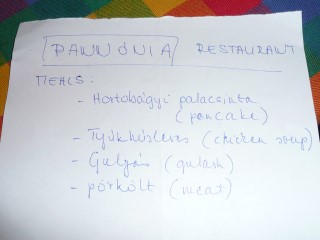 PANNÓNIA RESTAURANT
MEALS:
- Hortobágyi palacsinta
(pancake)
- Tyúkhúsleves (chicken soup)
- Gulyás (gulash)
- pörkölt (meat)